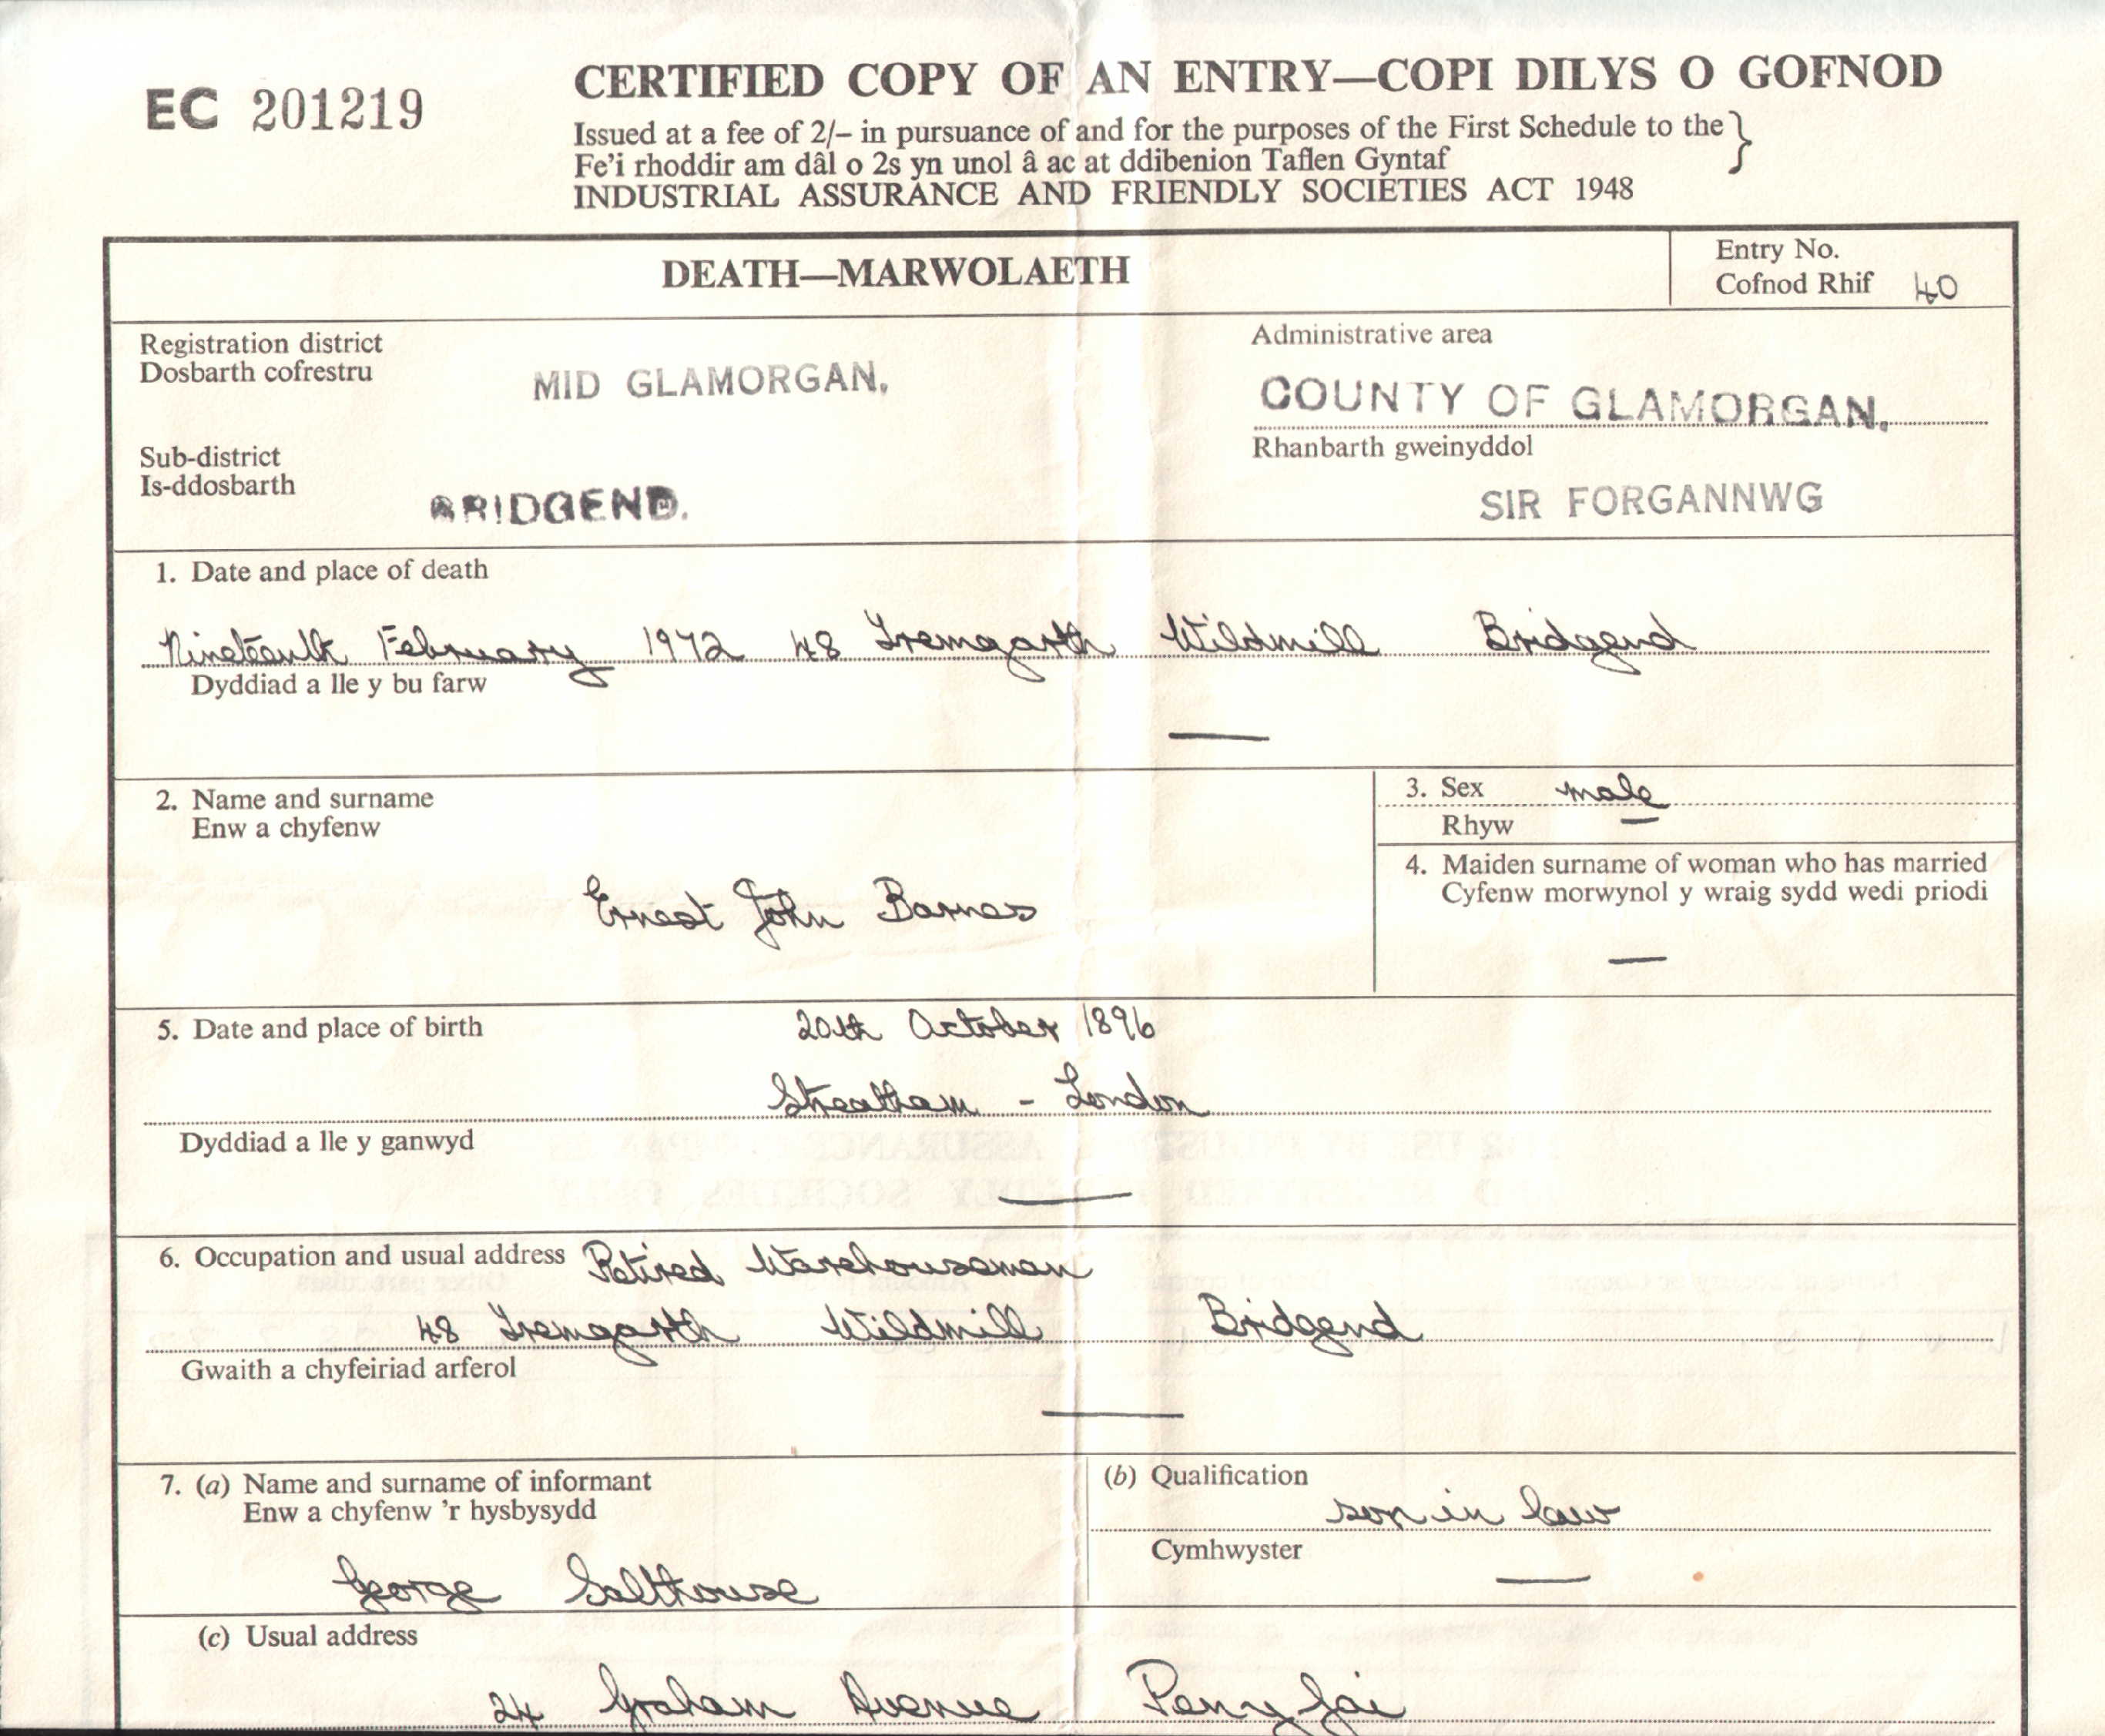 EC 201219
CERTIFIED COPY OF AN ENTRY—COPI DILYS O GOFNOD
Issued at a fee of 2/– in pursuance of and for the purposes of the First Schedule to the }
Fe'i rhoddir am dâl o 2s yn unol â ac at ddibenion Taflen Gyntaf
INDUSTRIAL ASSURANCE AND FRIENDLY SOCIETIES ACT 1948
DEATH—MARWOLAETH
Entry No.
Cofnod Rhif 40
Registration district
Dosbarth cofrestru
MID GLAMORGAN.
Administrative area
COUNTY OF GLAMORGAN.
Rhanbarth gweinyddol
SIR FORGANNWG
Sub-district
Is-ddosbarth
BRIDGEND.
1. Date and place of death
Nineteenth February 1972 48 Tremgarth Wildmill Bridgend
Dyddiad a lle y bu farw
2. Name and surname
Enw a chyfenw
Ernest John Barnes
3. Sex male
Rhyw
4. Maiden surname of woman who has married
Cyfenw morwynol y wraig sydd wedi priodi
5. Date and place of birth 20th October 1896
Streatham - London
Dyddiad a lle y ganwyd
6. Occupation and usual address Retired Warehouseman
48 Tremgarth Wildmill Bridgend
Gwaith a chyfeiriad arferol
7. (a) Name and surname of informant
Enw a chyfenw 'r hysbysydd
George Salthouse
(b) Qualification
son in law
Cymhwyster
(c) Usual address
24 Graham Avenue Penyfai